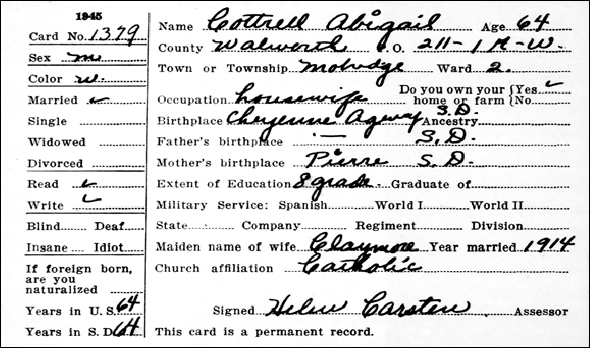 1945
Card No. 1379
Sex m
Color w.
Married ✓
Single
Widowed
Divorced
Read ✓
Write ✓
Blind Deaf
Insane Idiot
If foreign born,
are you
naturalized
Years in U. S. 64
Years in S. D. 64
Name Cottrell Abigail Age 64
County Walworth P.O. 211-1 A-W.
Town or Township Mobridge Ward 2.
Occupation housewife Do you own your home or farm {Yes ✓ {No
Birthplace Cheyenne Agency S.D. Ancestry
Father's birthplace — S.D.
Mother's birthplace Pierre S.D.
Extent of Education 8 grade. Graduate of
Military Service: Spanish World I World II
State Company Regiment Division
Maiden name of wife Claymore Year married 1914
Church affiliation Catholic
Signed Helen Carsten Assessor
This card is a permanent record.